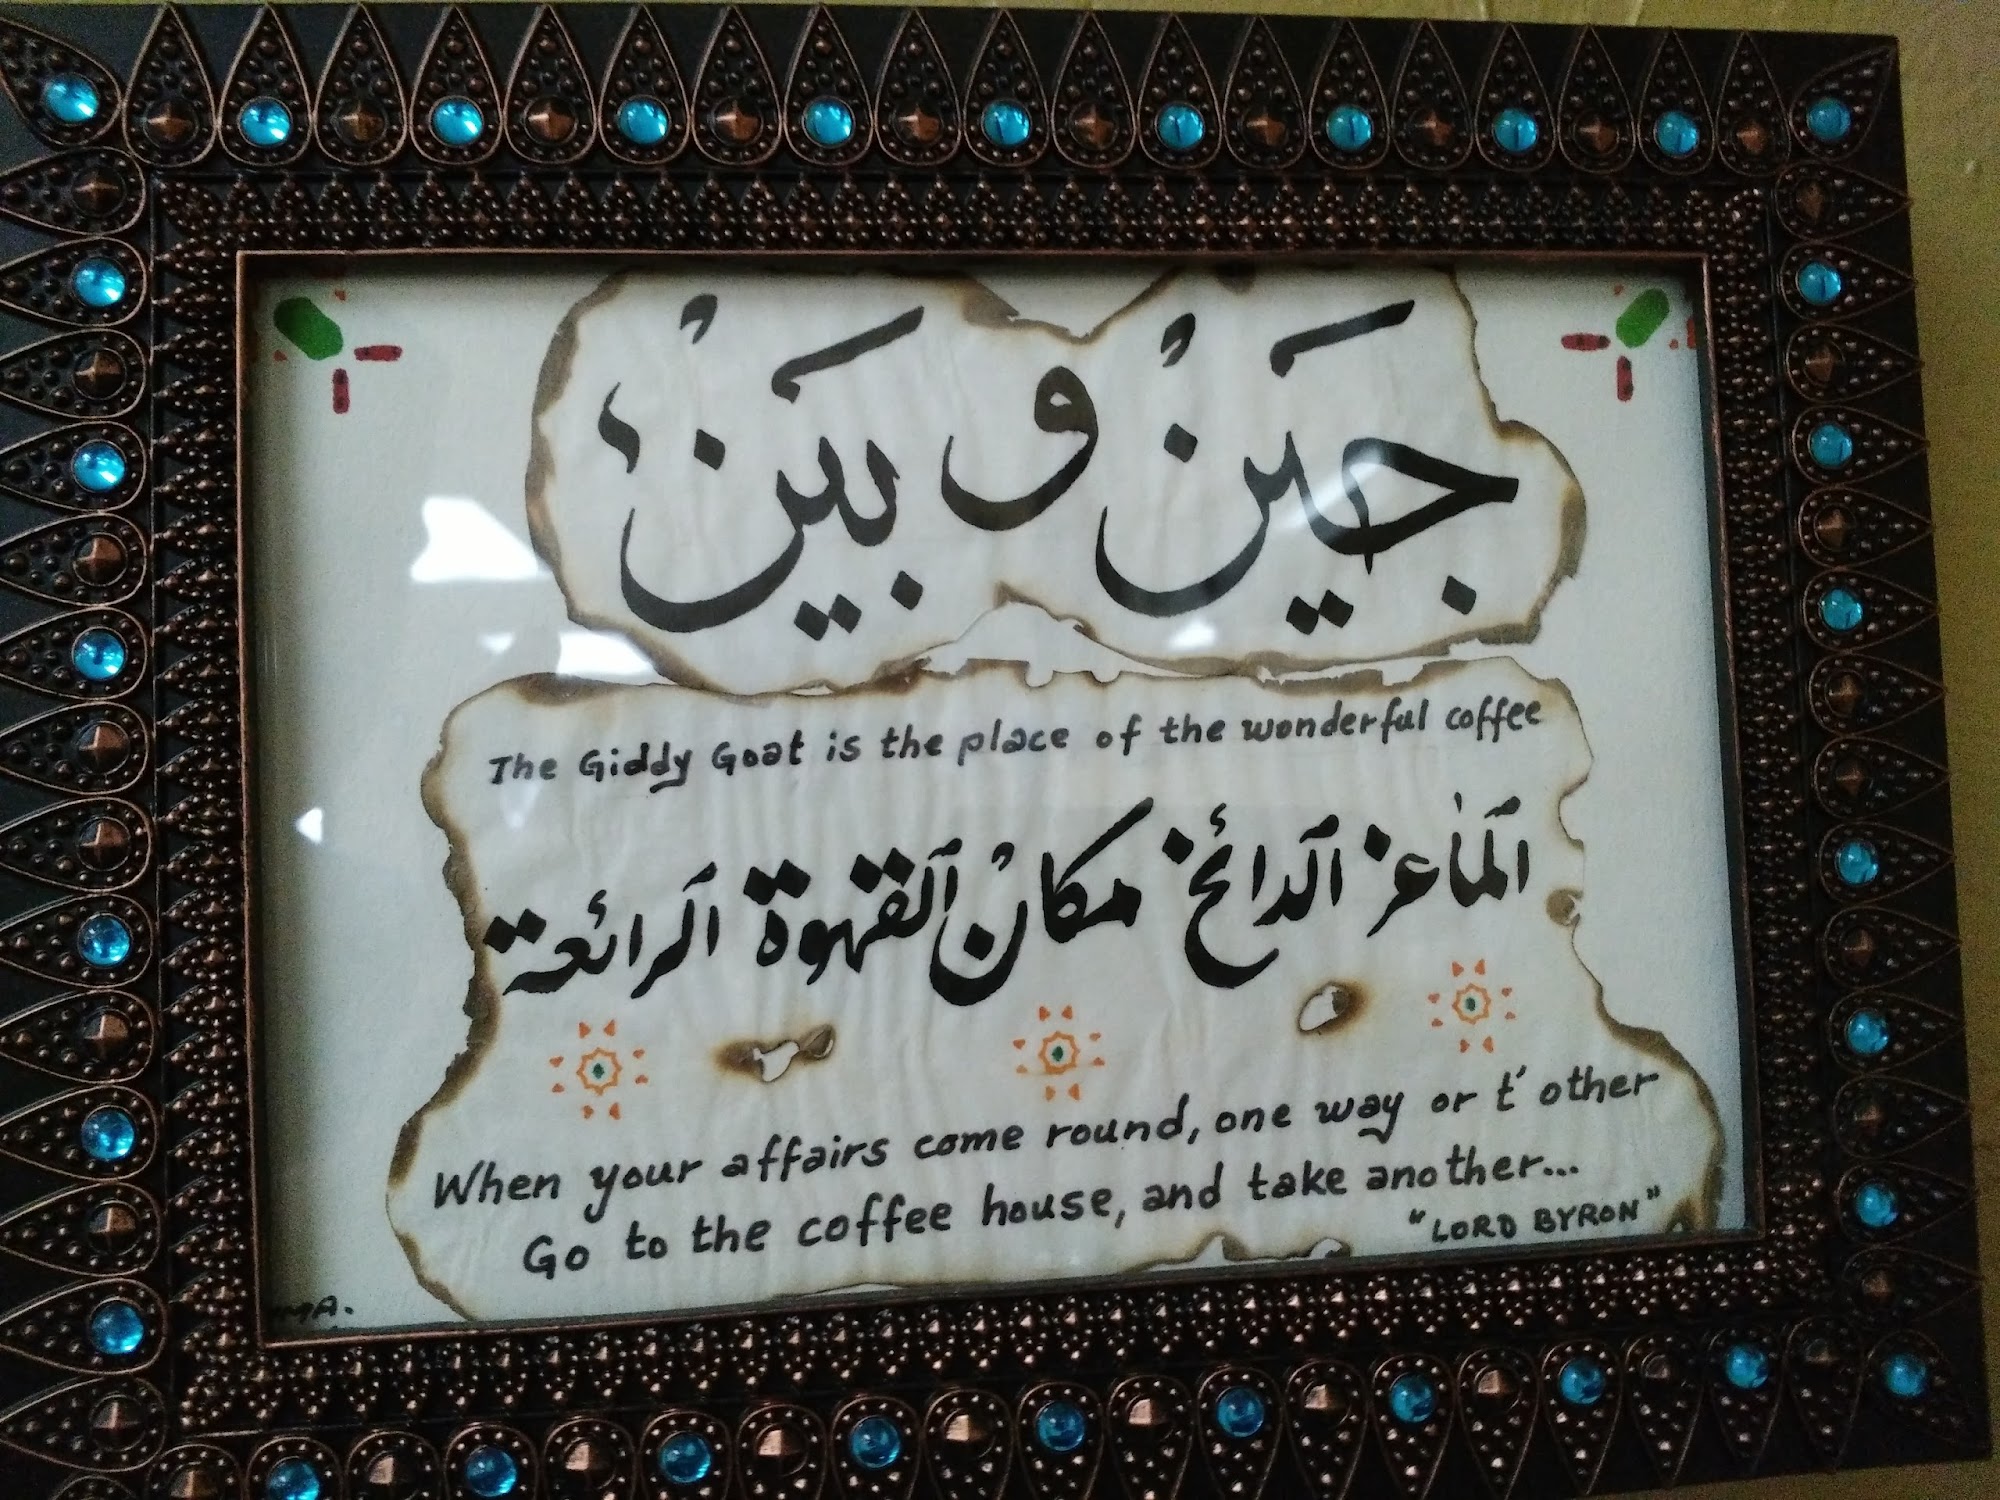 جَينْ و بَينْ
The Giddy Goat is the place of the wonderful coffee
الماعز الدائخ مكانْ القهوة الرائعة
When your affairs come round, one way or t' other
Go to the coffee house, and take another...
"LORD BYRON"